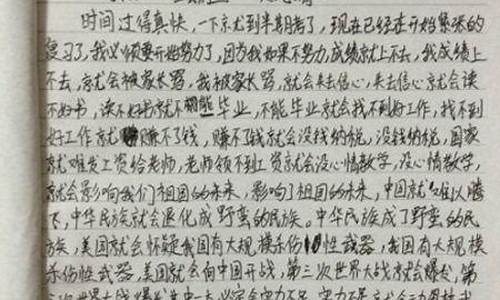 时间过得真快，一下尤到半期考了，现在已经在开始紧张的
复习了，我必须要开始努力了，因为我如果不努力，成绩就上不去，我成绩上
不去，就会被家长骂，我被家长骂，就会失去信心，失去信心就会读
不好书，读不好书就不能毕业，不能毕业就会找不到好工作，找不到
好工作就赚不了钱，赚不了钱就会没钱纳税，没钱纳税，国家
就难发工资给老师，老师领不到工资就会没心情教学，没心情教学，
就会影响我们祖国的未来，影响了祖国的未来，中国就难以腾
飞，中华民族就会退化成野蛮的民族。中华民族成了野蛮的民
族，美国就会怀疑我国有大规模杀伤性武器，我国有大规模
杀伤性武器，美国就会向中国开战，第三次世界大战就会爆发，第
三次世界大战爆发其中一方必定会实力不足，实力不足就会动用核武